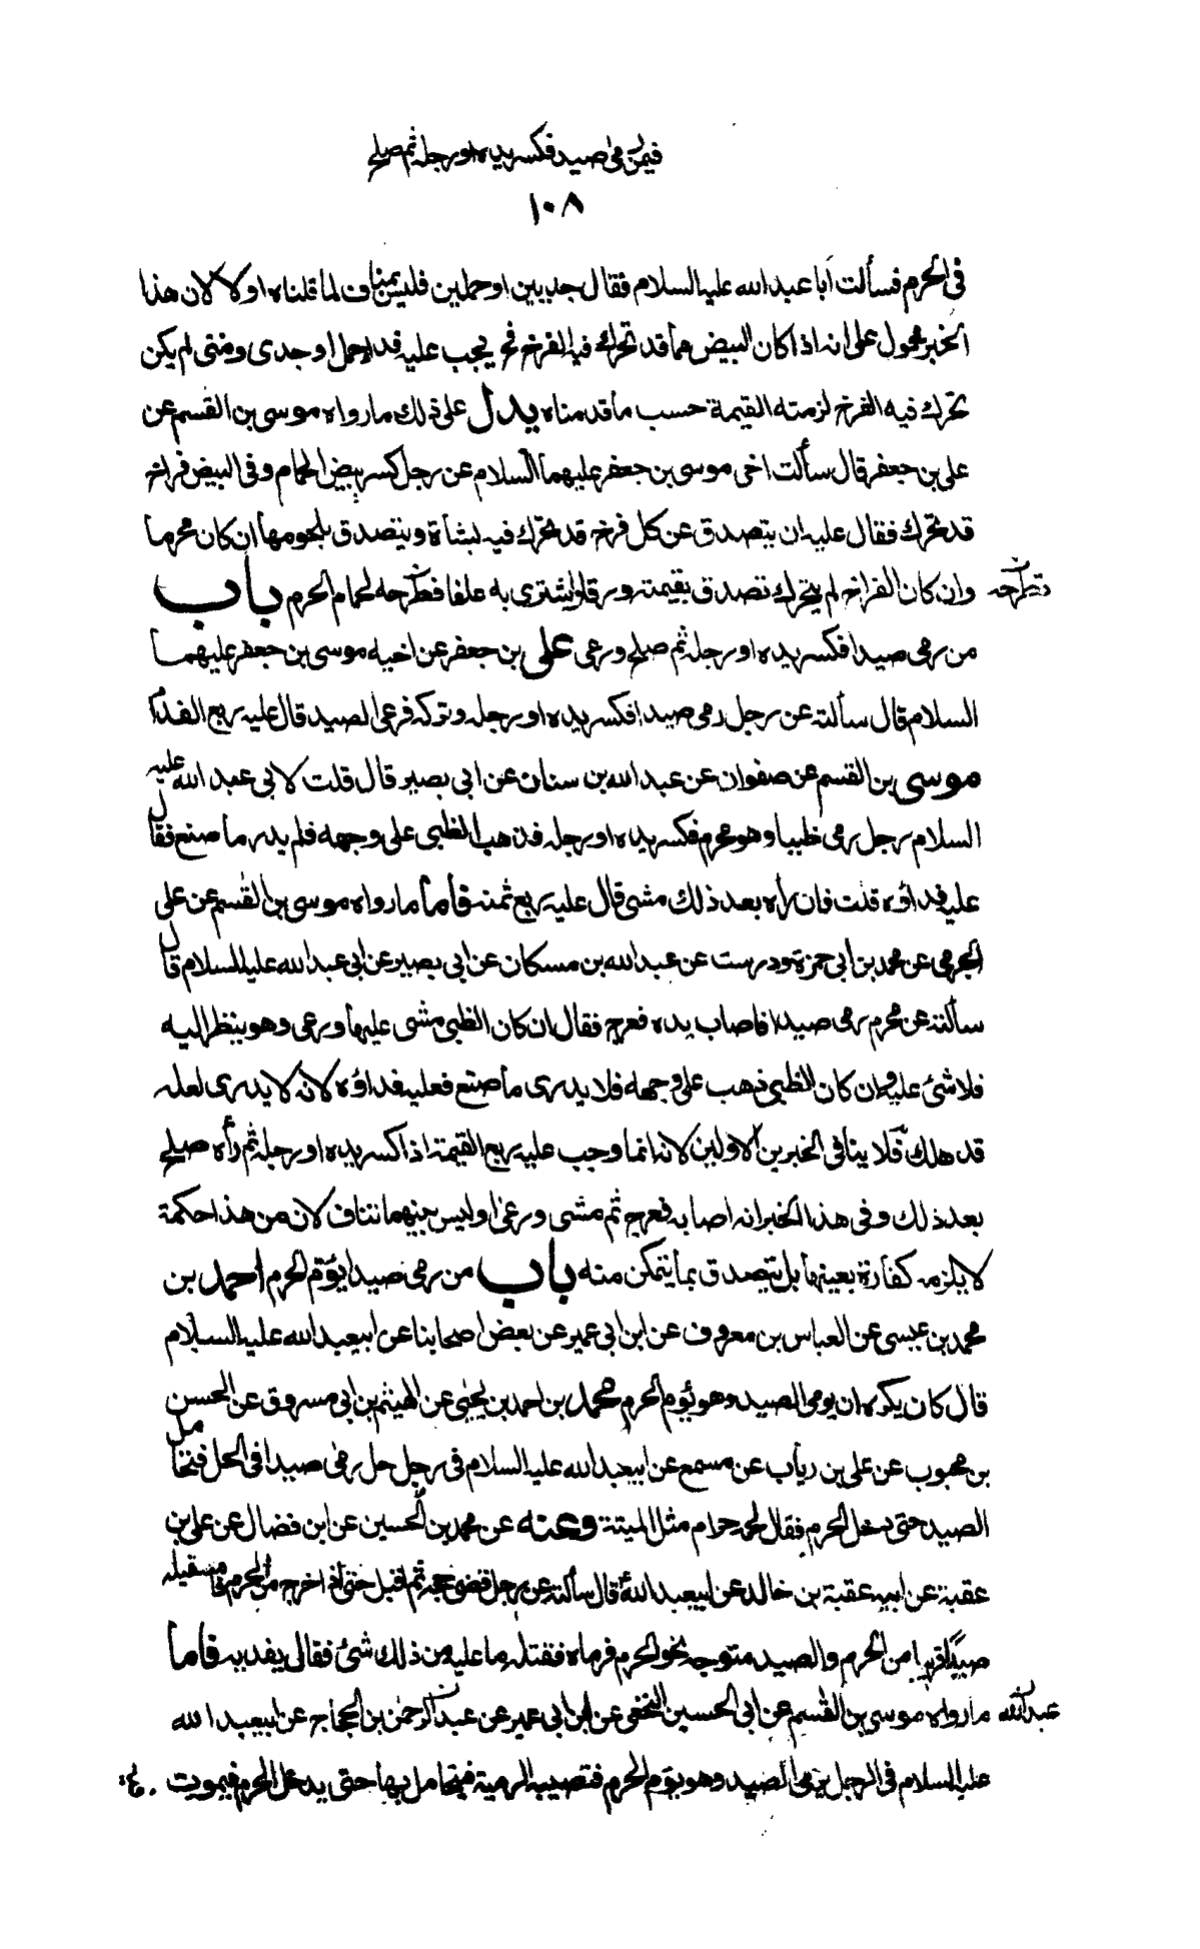 فيمن رمى صيد فكسر يده او رجله ثم صلح
١٠٨
فى الحرم فسألت أبا عبد الله عليه السلام فقال جديين او حملين فليس بمناف لما قلناه اولا لان هذا
الخبر محمول على انه اذا كان البيض مما قد تحرك فيه الفرخ فح يجب عليه فداء حمل او جدى ومتى لم يكن
تحرك فيه الفرخ لزمته القيمة حسب ما قدمناه يدل على ذلك ما رواه موسى بن القسم عن
على بن جعفر قال سألت اخى موسى بن جعفر عليهما السلام عن رجل كسر بيض الحمام وفى البيض فراخ
قد تحرك فقال عليه ان يتصدق عن كل فرخ قد تحرك فيه بشأة ويتصدق بلحومها ان كان محرما
وان كان الفراخ لم يتحرك تصدق بقيمته ورقا يشترى به علفا فطرحه لحمام الحرم باب
تطرحه
من رمى صيدا فكسر يده او رجله ثم صلح ورعى على بن جعفر عن اخيه موسى بن جعفر عليهما
السلام قال سألته عن رجل رمى صيدا فكسر يده او رجله وتركه فرعى الصيد قال عليه ربع الفداء
موسى بن القسم عن صفوان عن عبد الله بن سنان عن ابى بصير قال قلت لابى عبد الله عليه
السلام رجل رمى ظبيا وهو محرم فكسر يده او رجله فذهب الظبى على وجهه فلم يدر ما صنع فقال
عليه فداؤه قلت فان رأه بعد ذلك مشى قال عليه ربع ثمنه فاما ما رواه موسى بن القسم عن على
الجرمى عن محمد بن ابى حمزة ودرست عن عبد الله بن مسكان عن ابى بصير عن ابى عبد الله عليه السلام قال
سألته عن محرم رمى صيدا فاصاب يده فعرج فقال ان كان الظبى مشى عليها ورعى وهو ينظر اليه
فلا شئ عليه وان كان الظبى ذهب على وجهه فلا يدرى ما صنع فعليه فداؤه لانه لا يدرى لعله
قد هلك فلا ينافى الخبرين الاولين لانه انما وجب عليه ربع القيمة اذا كسر يده او رجله ثم رأه صلح
بعد ذلك وفى هذا الخبر انه اصابه فعرج ثم مشى ورعى او ليس بينهما تناف لان من هذا حكمه
لا يلزمه كفارة بعينها بل يتصدق بما يتمكن منه باب من رمى صيدا يؤم الحرم احمد بن
محمد بن عيسى عن العباس بن معروف عن ابن ابى عمير عن بعض اصحابنا عن ابيعبد الله عليه السلام
قال كان يكره ان يرمى الصيد وهو يؤم الحرم محمد بن احمد بن يحيى عن الهيثم بن ابى مسروق عن الحسن
بن محبوب عن على بن رياب عن مسمع عن ابيعبد الله عليه السلام فى رجل حل رمى صيدا فى الحل فتحامل
الصيد حتى دخل الحرم فقال لحمه حرام مثل الميتة وعنه عن محمد بن الحسين عن ابن فضال عن على بن
عقبة عن ابيه عقبة بن خالد عن ابيعبد الله قال سألته عن رجل قضى حجه ثم اقبل حتى اذا خرج من الحرم فاستقبله
صيد قريبا من الحرم والصيد متوجه نحو الحرم فرماه فقتله ما عليه من ذلك شئ فقال يفديه فاما
ما رواه موسى بن القسم عن ابى الحسين النخعى عن ابن ابى عمير عن عبد الرحمن بن الحجاج عن ابيعبد الله
عبد الله
عليه السلام فى الرجل يرمى الصيد وهو يؤم الحرم فتصيبه الرمية فيتحامل بها حتى يدخل الحرم فيموت